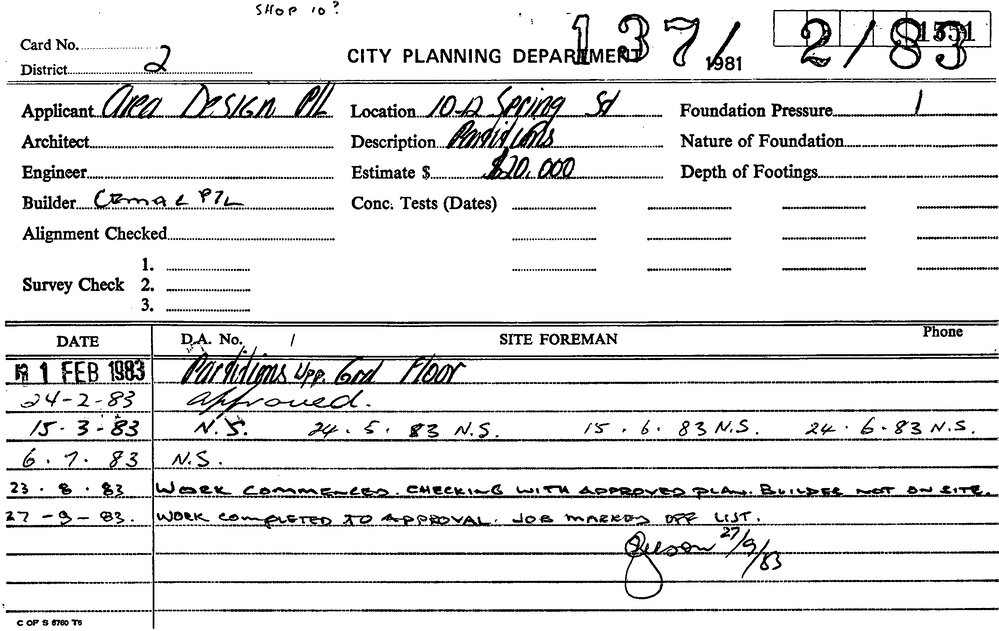 SHOP 10?
Card No.
137/ 2/83
CITY PLANNING DEPARTMENT 1981
District 2
Applicant Area Design P/L Location 10-12 Spring St Foundation Pressure
Architect Description Partitions Nature of Foundation
Engineer Estimate $ $20,000 Depth of Footings
Builder P/L Conc. Tests (Dates)
Alignment Checked
1.
Survey Check 2.
3.
DATE D.A. No. SITE FOREMAN Phone
1 FEB 1983 Partitions Upp. Grd Floor
24-2-83 approved.
15.3.83 N.S. 24.5.83 N.S. 15.6.83 N.S. 24.6.83 N.S.
6.7.83 N.S.
23.8.83 WORK COMMENCED. CHECKING WITH APPROVED PLAN. BUILDER NOT ON SITE.
27-9-83. WORK COMPLETED TO APPROVAL. JOB MARKED OFF LIST.
27/9/83
C OF S 6760 T6